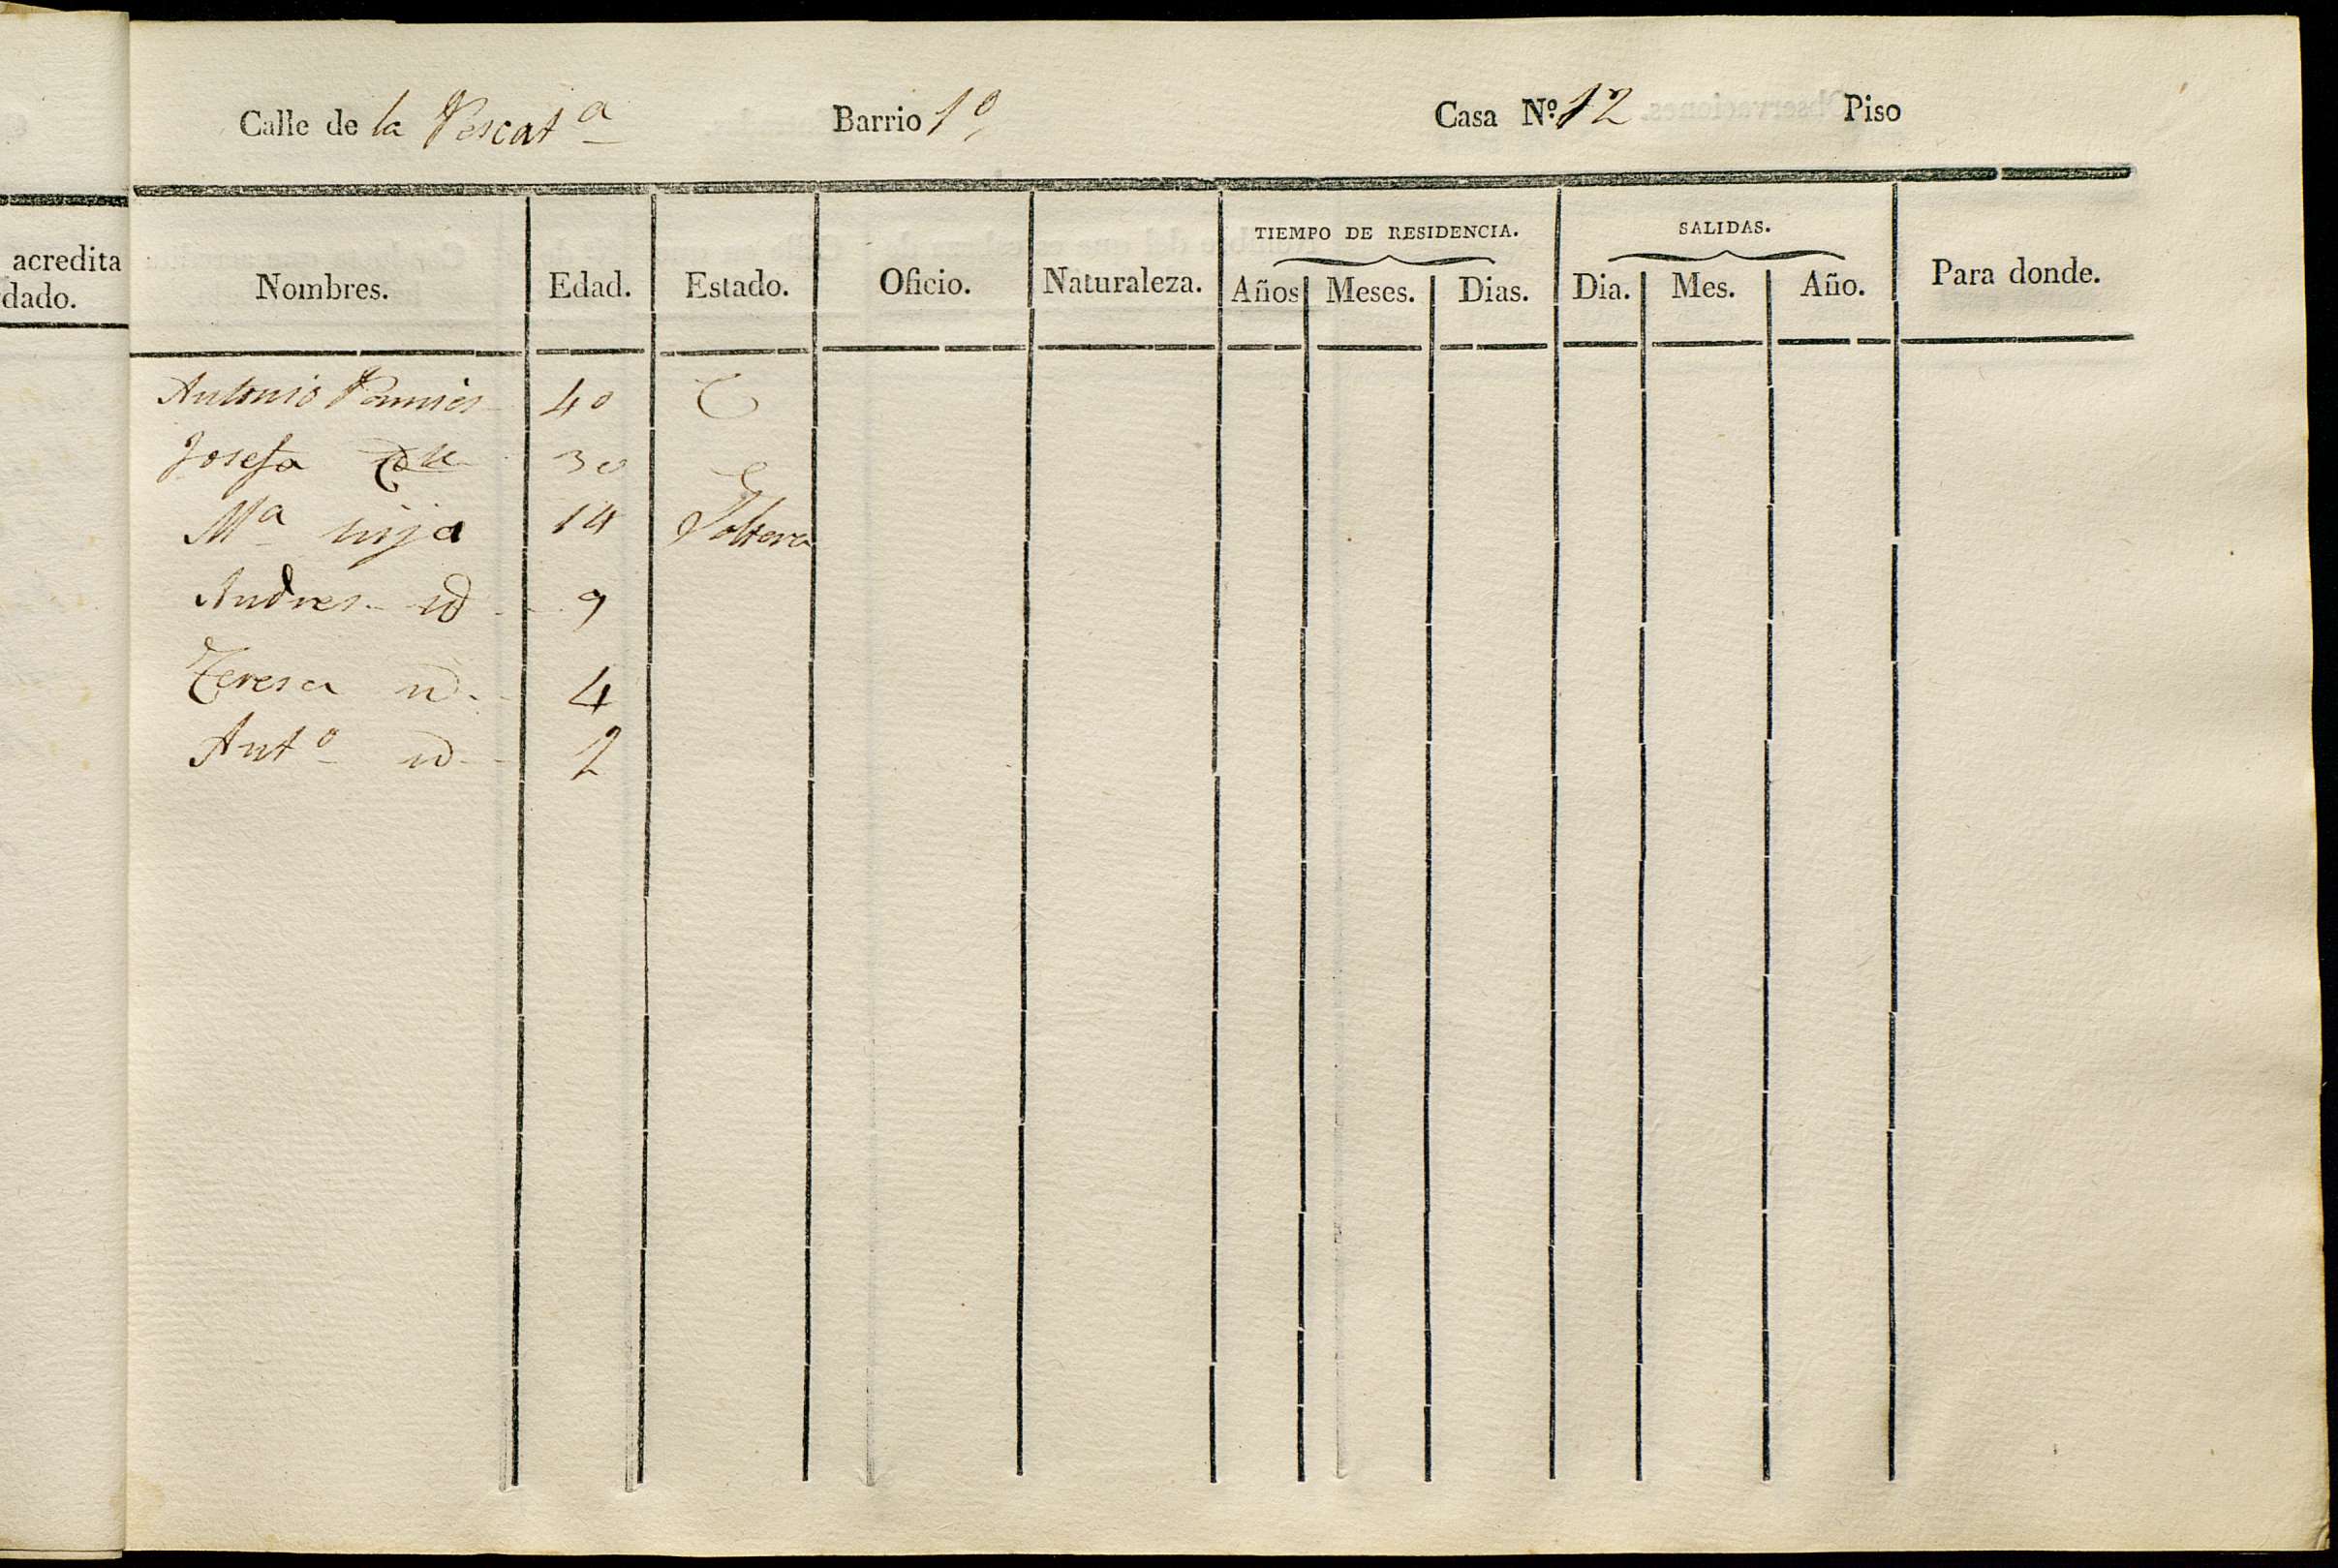 Calle de la Pescat.ª Barrio 1º Casa Nº 12 Piso
acredita
dado.
Nombres. Edad. Estado. Oficio. Naturaleza. TIEMPO DE RESIDENCIA. SALIDAS. Para donde.
Años Meses. Dias. Dia. Mes. Año.
Antonio Pamies 40 C
Josefa 30 C
Mª hija 14 Soltera
Andres id 9
Teresa id 4
Antº id 2